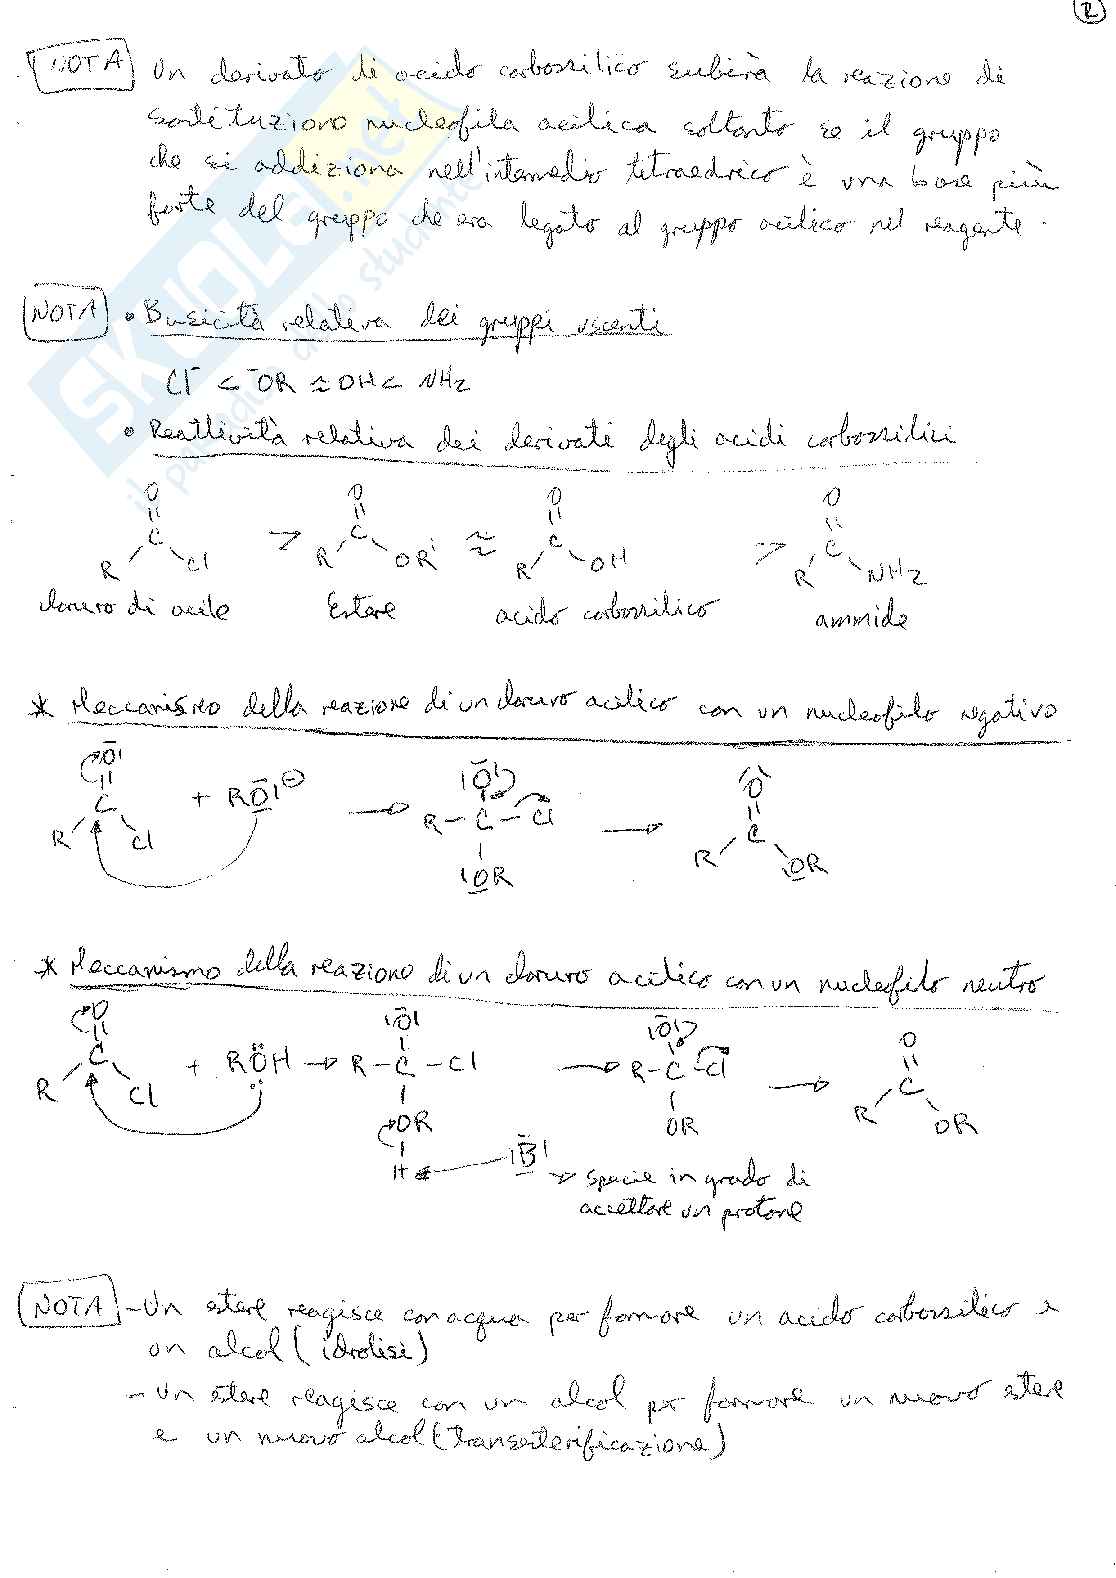 2
NOTA Un derivato di acido carbossilico subirà la reazione di
sostituzione nucleofila acilica soltanto se il gruppo
che si addiziona nell'intermedio tetraedrico è una base più
forte del gruppo che era legato al gruppo acilico nel reagente.
NOTA • Basicità relativa dei gruppi uscenti
Cl⁻ < ⁻OR ≈ OH < NH2
• Reattività relativa dei derivati degli acidi carbossilici
O O O O
C > C ≈ C > C
R Cl R OR' R OH R NH2
cloruro di acile Estere acido carbossilico ammide
* Meccanismo della reazione di un cloruro acilico con un nucleofilo negativo
O O O
C + RO⁻ → R-C-Cl → C
R Cl OR R OR
* Meccanismo della reazione di un cloruro acilico con un nucleofilo neutro
O O O O
C + ROH → R-C-Cl → R-C-Cl → C
R Cl OR OR R OR
H B → specie in grado di
accettare un protone
NOTA - Un estere reagisce con acqua per formare un acido carbossilico e
un alcol (idrolisi)
- Un estere reagisce con un alcol per formare un nuovo estere
e un nuovo alcol (transesterificazione)
SKUOLA.net
il paradiso dello studente